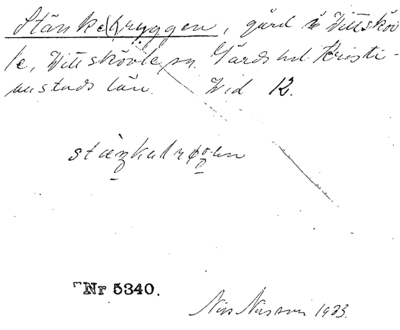 Stänkelryggen, gård i Vittsköv
le, Vittskövle sn Gärds hd. Kristi-
anstads län. Wid 12.
Nr 5340.
Nils Nilsson 1923.